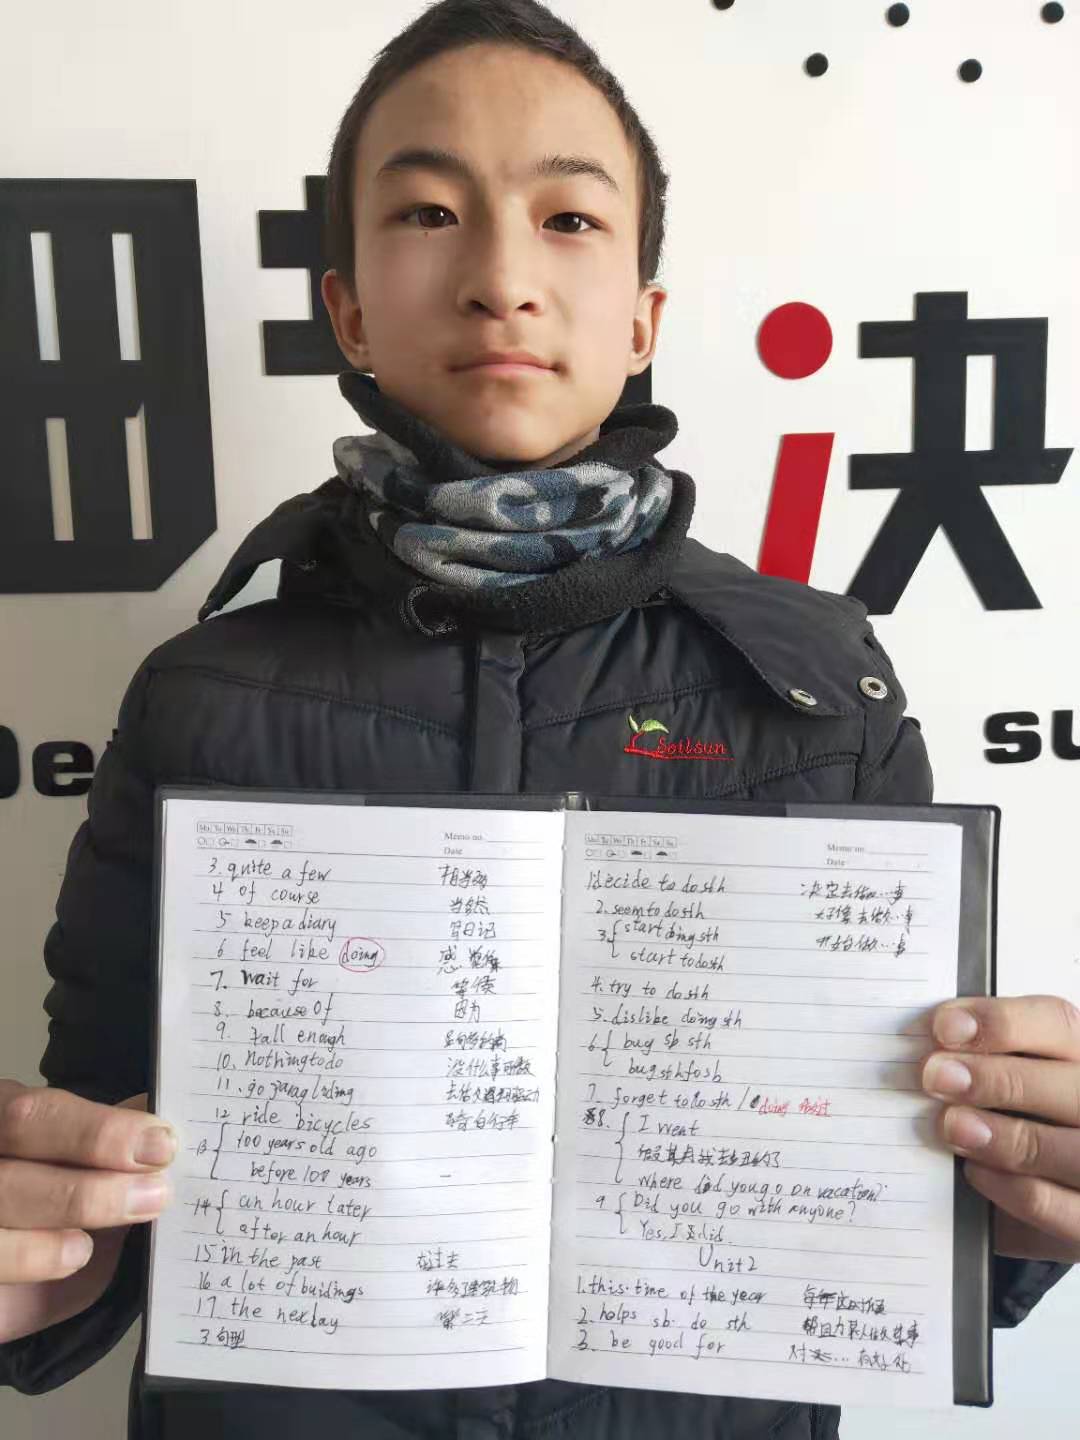 决
su
Soilsun
Mo Tu We Th Fr Sa Su
Memo no.
Date
3. quite a few
4 of course 当然
5 keep a diary 写日记
6 feel like doing 感觉像
7. Wait for 等候
8. because Of 因为
9. tall enough
10. nothing to do 没什么事可做
11. go paragliding
12 ride bicycles 骑自行车
13 100 years old ago
before 100 years
14 an hour later
after an hour
15 in the past 在过去
16 a lot of buidings 许多建筑物
17 the nexday 第二天
3. 句型
Mo Tu We Th Fr Sa Su
Memo no.
Date
1. decide to do sth 决定去做…事
2. seem to do sth 好像去做…事
3 start doing sth 开始做…事
start to do sth
4. try to do sth
5. dislike doing sth
6 bug sb sth
bug sth fo sb
7. forget to do sth / doing
8. I went
where did you go on vacation?
9 Did you go with anyone?
Yes, I did.
Unit 2
1. this time of the year 每年这时候
2. helps sb. do sth
3. be good for 对…有好处